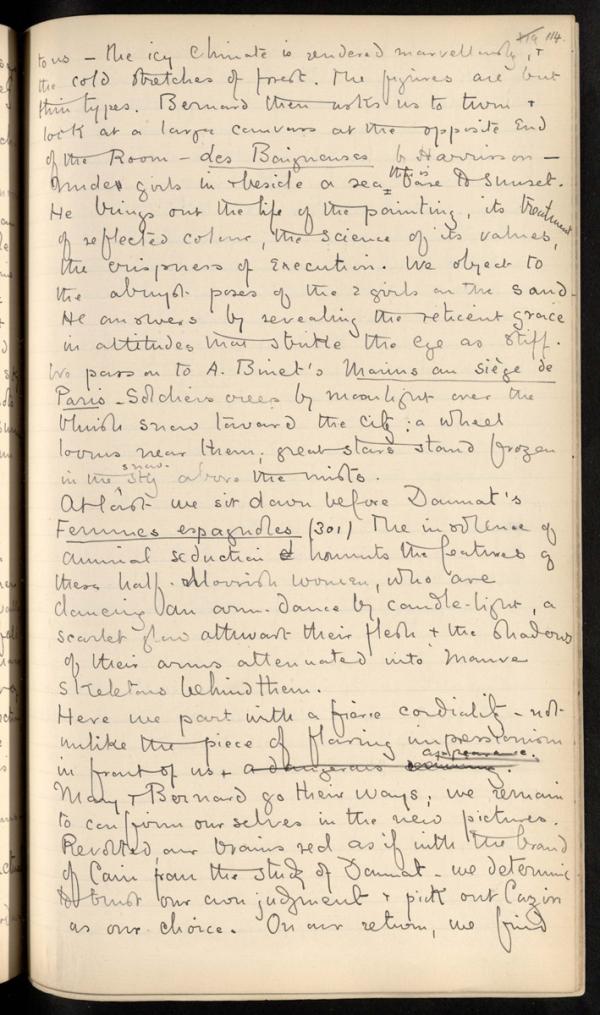 114.
to us – the icy climate is rendered marvellously, +
the cold stretches of forest. The figures are but
thin types. Bernard then asks us to turn +
look at a large canvass at the opposite End
of the Room – des Baigneuses by Harrisson –
nude girls in + beside a sea, this is Base to sunset.
He brings out the life of the painting, its treatment
of reflected colour, the science of its values,
the crispness of Execution. We object to
the abrupt poses of the 2 girls on the sand.
He answers by revealing the reticent grace
in attitudes that strike the Eye as stiff.
We pass on to A. Binet's Marins au siège de
Paris – Soldiers creep by moonlight over the
bluish snow toward the city: a wheel
looms near them; great stars stand frozen
in the sky above the mists.
snow.
At last we sit down before Dannat's
Femmes espagnoles (301) The insolence of
animal seduction haunts the features of
these half-Moorish women, who are
dancing an arm-dance by candle-light, a
scarlet glow athwart their flesh + the shadows
of their arms attenuated into mauve
skeletons behind them.
Here we part with a fierce cordiality – not
unlike the piece of flaring impressionism
in front of us + a dangerous appearance.
Mary + Bernard go their ways; we remain
to confirm ourselves in the new pictures.
Revolted, our brains red as if with the brand
of Cain from the study of Dannat – we determine
to trust our own judgment + pick out Cazin
as our choice. On our return, we find